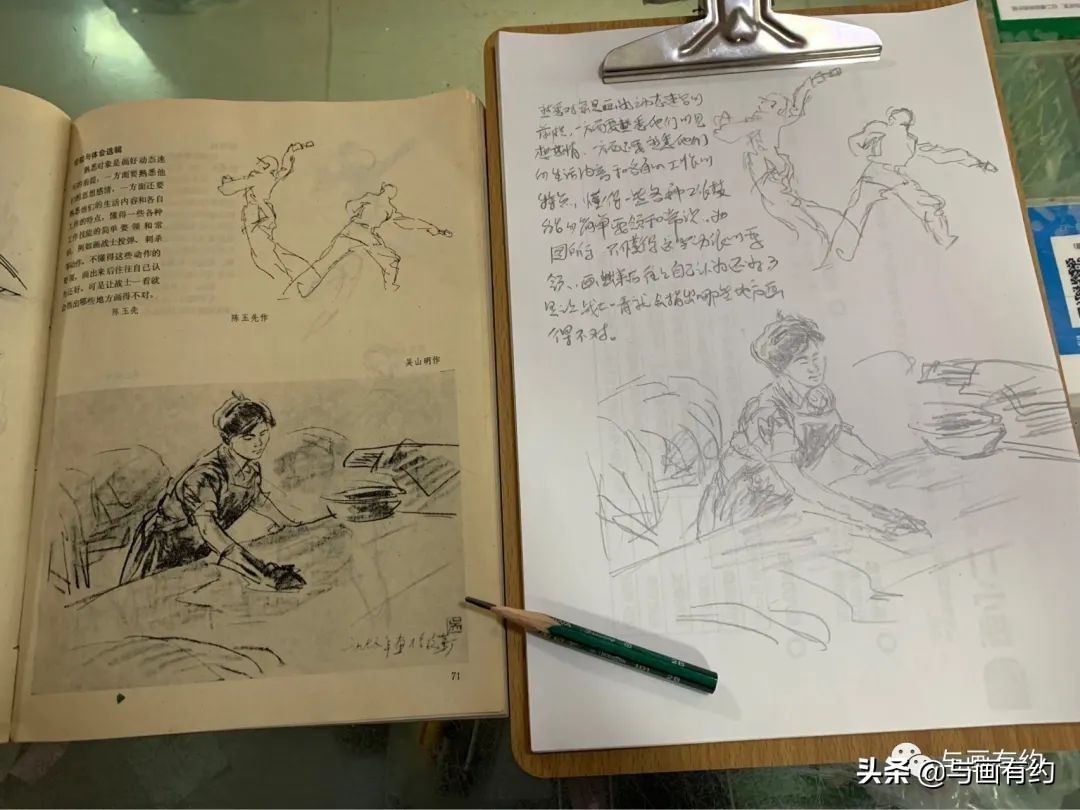 经验与体会选辑
熟悉对象是画好动态速
写的前提，一方面要熟悉他
们的思想感情，一方面还要
熟悉他们的生活内容和各自
工作的特点，懂得一些各种
工作技能的简单要领和常
识。例如画战士投弹、刺杀
等动作，不懂得这些动作的
要领，画出来后往往自己认
为还好，可是让战士一看就
会指出哪些地方画得不对。
陈玉先
陈玉先作
吴山明作
71
熟悉对象是画出动态速写的
前提，一方面要熟悉他们的思
想感情，一方面还要熟悉他们
的生活内容和各自的工作的
特点，懂得一些各种工作技
能的简单要领和常识。如
图所示，不懂得这些方法的要
领，画出来后往往自己认为还好了
但让战士一看就会指出哪些地方画
得不对。
101 2B
与画有约
头条 @与画有约